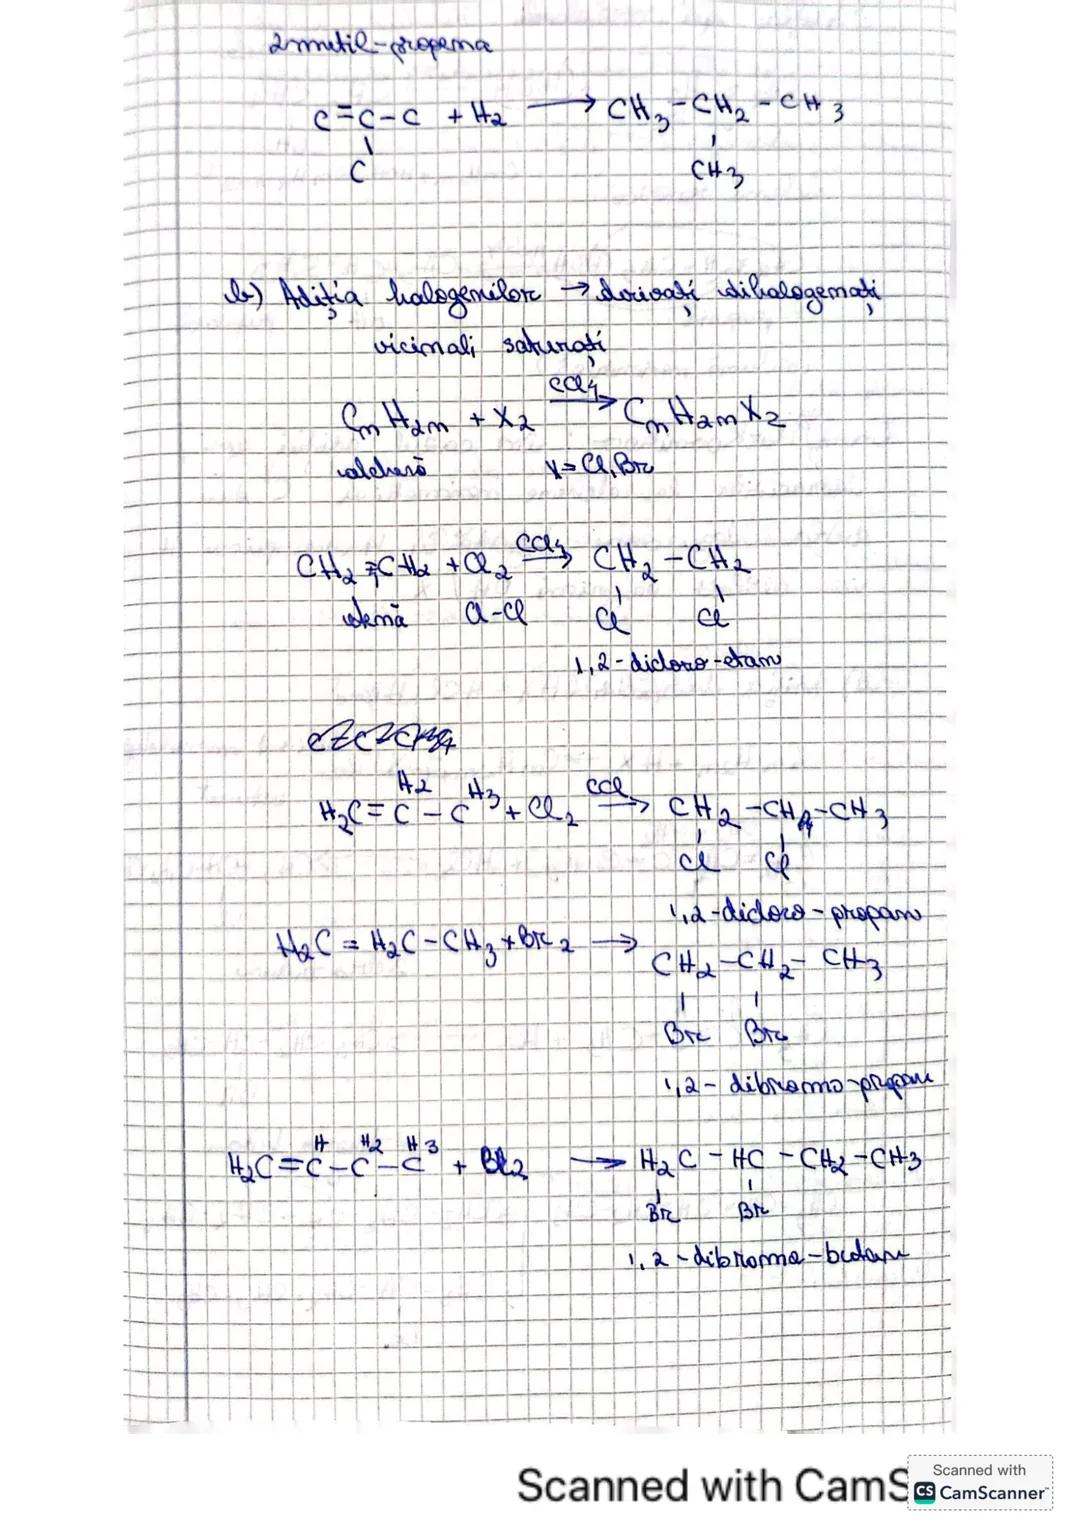 2 metil-propena
C=C-C + H2 → CH3-CH2-CH3
C CH3
b) Adiția halogenilor → derivați dihalogenați
vicinali saturați
CCl4
CnH2n + X2 → CnH2nX2
alchenă X=Cl, Br
CH2=CH2 + Cl2 CCl4 → CH2-CH2
etenă Cl-Cl Cl Cl
1,2-dicloro-etan
H2 H3 CCl
H2C=C-C + Cl2 → CH2-CH-CH3
Cl Cl
1,2-dicloro-propan
H2C = H2C-CH3 + Br2 → CH2-CH2-CH3
Br Br
1,2-dibromo-propan
H H2 H3
H2C=C-C-C + Br2 → H2C-HC-CH2-CH3
Br Br
1,2-dibromo-butan
Scanned with CamS
Scanned with
CS CamScanner